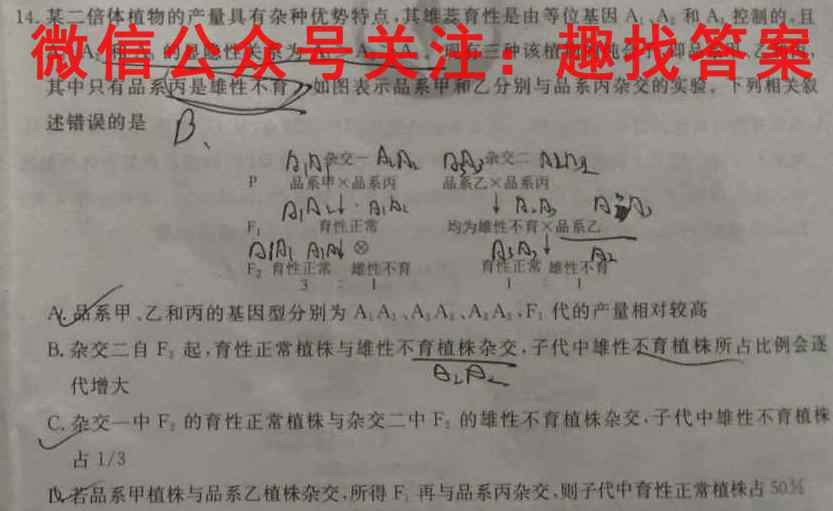 14. 某二倍体植物的产量具有杂种优势特点,其雄蕊育性是由等位基因 A₁、A₂ 和 A₃ 控制的,且
微信公众号关注：趣找答案
其中只有品系丙是雄性不育,如图表示品系甲和乙分别与品系丙杂交的实验。下列相关叙
述错误的是
B、
杂交一 杂交二
P 品系甲×品系丙 品系乙×品系丙
F₁ 育性正常 均为雄性不育×品系乙
F₂ 育性正常 雄性不育 育性正常 雄性不育
3 : 1 1 : 1
A. 品系甲、乙和丙的基因型分别为 A₁A₁、A₃A₃、A₂A₂,F₁ 代的产量相对较高
B. 杂交二自 F₂ 起,育性正常植株与雄性不育植株杂交,子代中雄性不育植株所占比例会逐
A₂A₂
代增大
C. 杂交一中 F₂ 的育性正常植株与杂交二中 F₂ 的雄性不育植株杂交,子代中雄性不育植株
占 1/3
D. 若品系甲植株与品系乙植株杂交,所得 F₁ 再与品系丙杂交,则子代中育性正常植株占 50%